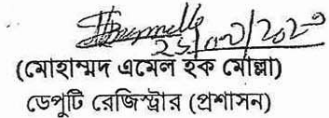 (মোহাম্মদ এমেল হক মোল্লা)
ডেপুটি রেজিস্ট্রার (প্রশাসন)